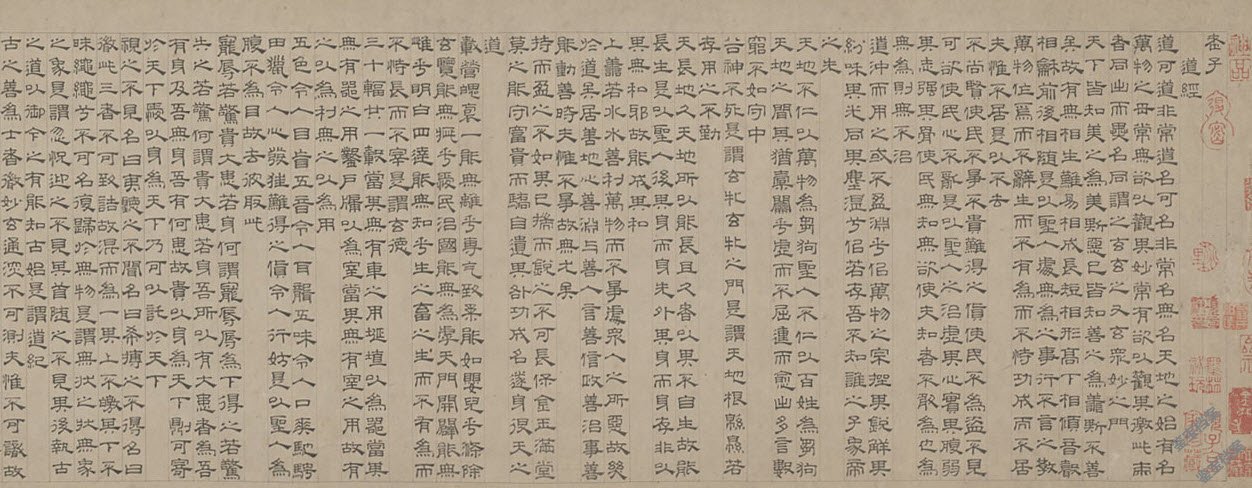 老子
道經
道可道非常道名可名非常名無名天地之始有名
萬物之母常無欲以觀其妙常有欲以觀其徼此兩
者同出而異名同謂之玄玄之又玄眾妙之門
天下皆知美之為美斯惡已皆知善之為善斯不善
矣故有無相生難易相成長短相形高下相傾音聲
相龢前後相隨是以聖人處無為之事行不言之教
萬物作焉而不辭生而不有為而不恃功成不居
夫惟不居是以不去
不尚賢使民不爭不貴難得之貨使民不為盜不見
可欲使民心不亂是以聖人之治虛其心實其腹弱
其志强其骨使民無知無欲使夫知者不敢為也為
無為則無不治
道沖而用之或不盈淵乎似萬物之宗挫其銳解其
紛和其光同其塵湛兮似若存吾不知誰之子象帝
之先
天地不仁以萬物為芻狗聖人不仁以百姓為芻狗
天地之間其猶橐籥乎虛而不屈動而愈出多言數
窮不如守中
谷神不死是謂玄牝玄牝之門是謂天地根綿綿若
存用之不勤
天長地久天地所以能長且久者以其不自生故能
長生是以聖人後其身而身先外其身而身存非以
其無私耶故能成其私
上善若水水善利萬物而不爭處眾人之所惡故幾
於道矣居善地心善淵與善人言善信政善治事善
能動善時夫惟不爭故無尤矣
持而盈之不如其已揣而銳之不可長保金玉滿堂
莫之能守富貴而驕自遺其咎功成名遂身退天之
道
載營魄裒一能無離乎專氣致柔能如嬰兒乎滌除
玄覽能無疵乎愛民治國能無為乎天門開闔能無
雌乎明白四達能無知乎生之畜之生而不有為而
不恃長而不宰是謂玄德
三十輻共一轂當其無有車之用埏埴以為器當其
無有器之用鑿戶牖以為室當其無有室之用故有
之以為利無之以為用
五色令人目盲五音令人耳聾五味令人口爽馳騁
田獵令人心發狂難得之貨令人行妨是以聖人為
腹不為目故去彼取此
寵辱若驚貴大患若身何謂寵辱辱為下得之若驚
失之若驚何謂貴大患若身吾所以有大患者為吾
有身及吾無身吾有何患故貴以身為天下則可寄
於天下愛以身為天下乃可以託於天下
視之不見名曰夷聽之不聞名曰希搏之不得名曰
微此三者不可致詰故混而為一其上不皦其下不
昧繩繩兮不可名復歸於無物是謂無狀之狀無象
之象是謂忽恍迎之不見其首隨之不見其後執古
之道以御今之有能知古始是謂道紀
古之善為士者微妙玄通深不可測夫惟不可識故